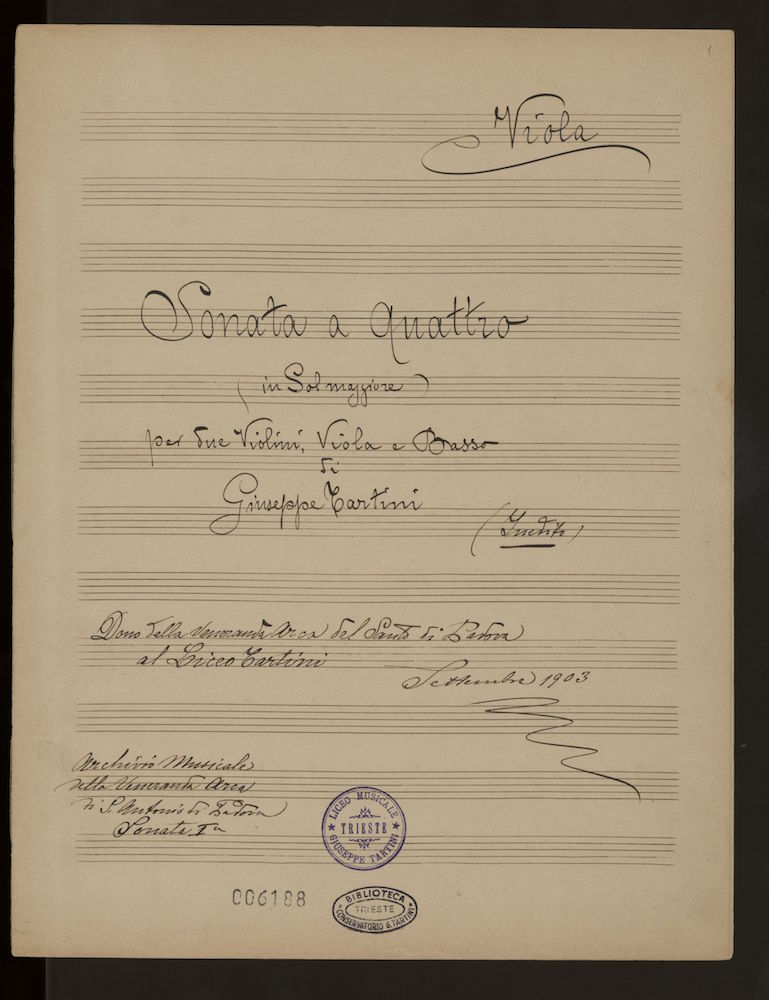 1
Viola
Sonata a Quattro
(in Sol maggiore)
per due Violini, Viola e Basso
di
Giuseppe Tartini
(Inedito)
Dono della Veneranda Arca del Santo di Padova
al Liceo Tartini
Settembre 1903
Archivio Musicale
della Veneranda Arca
di S. Antonio di Padova
Sonata Iª
LICEO MUSICALE
TRIESTE
GIUSEPPE TARTINI
006188
BIBLIOTECA
TRIESTE
CONSERVATORIO G. TARTINI